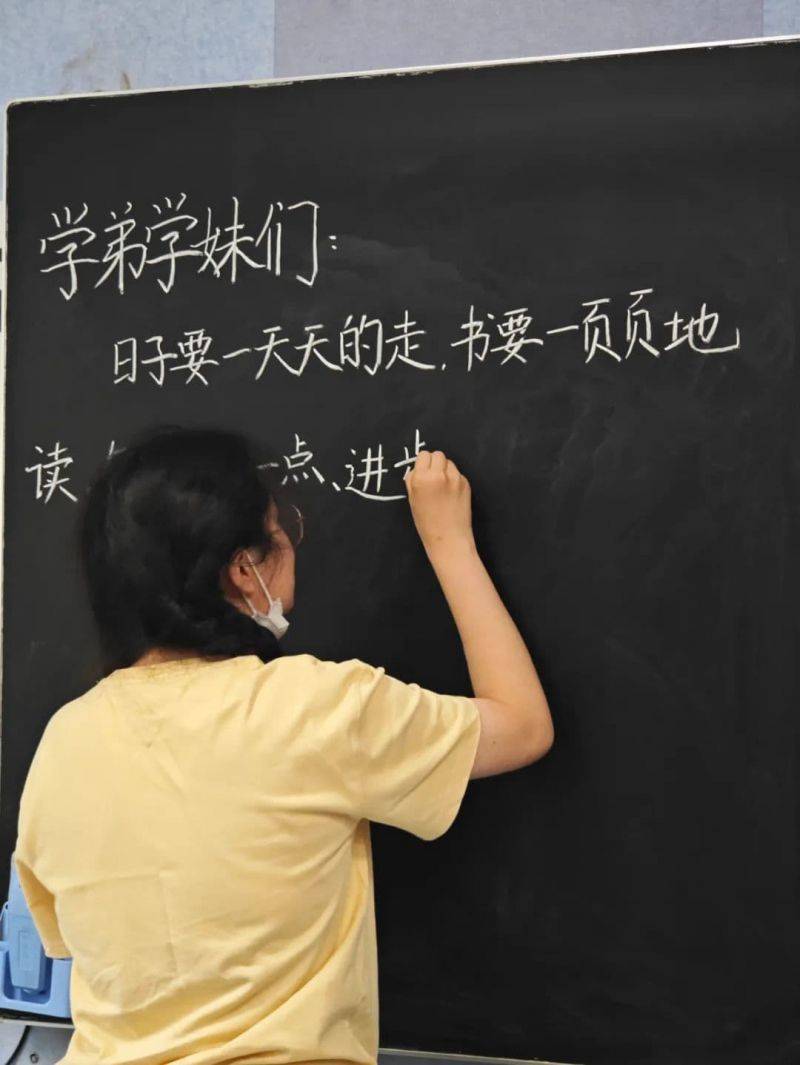 学弟学妹们：
日子要一天天的走，书要一页页地
读 一点、进步